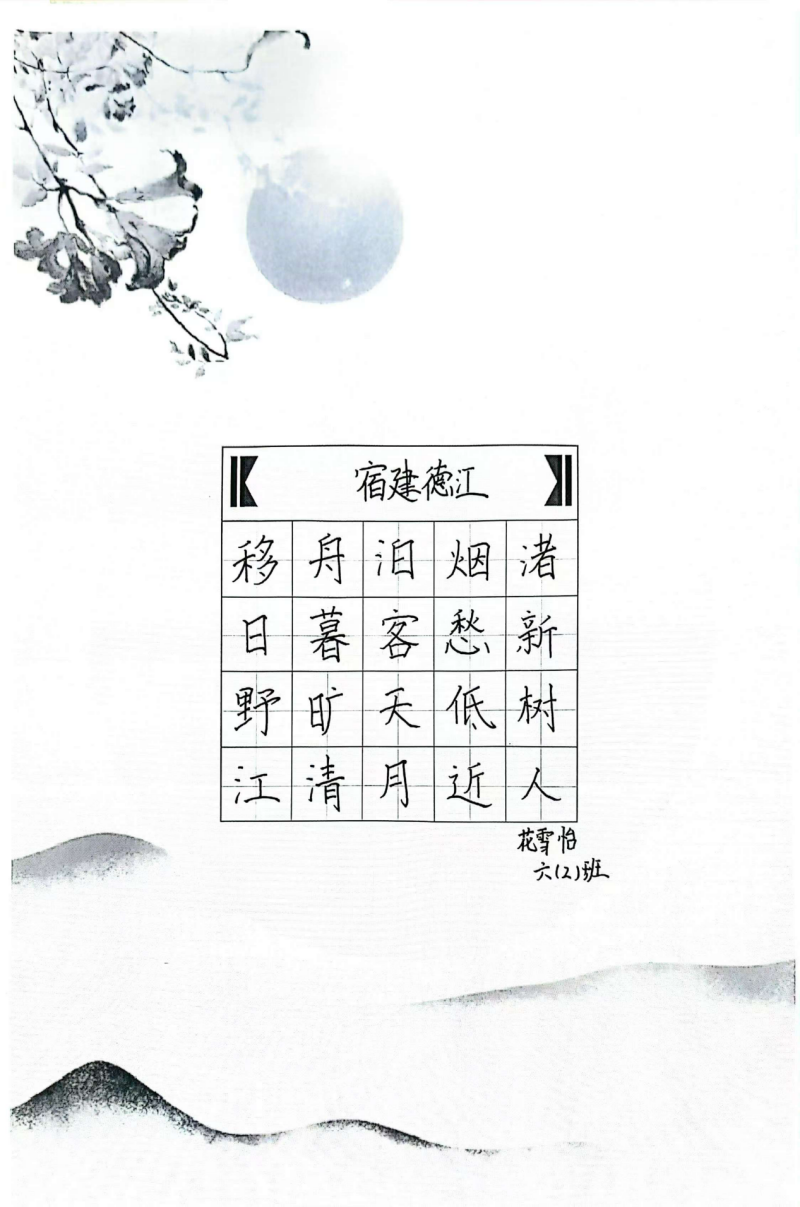 宿建德江
移舟泊烟渚
日暮客愁新
野旷天低树
江清月近人
花雪怡
六(2)班